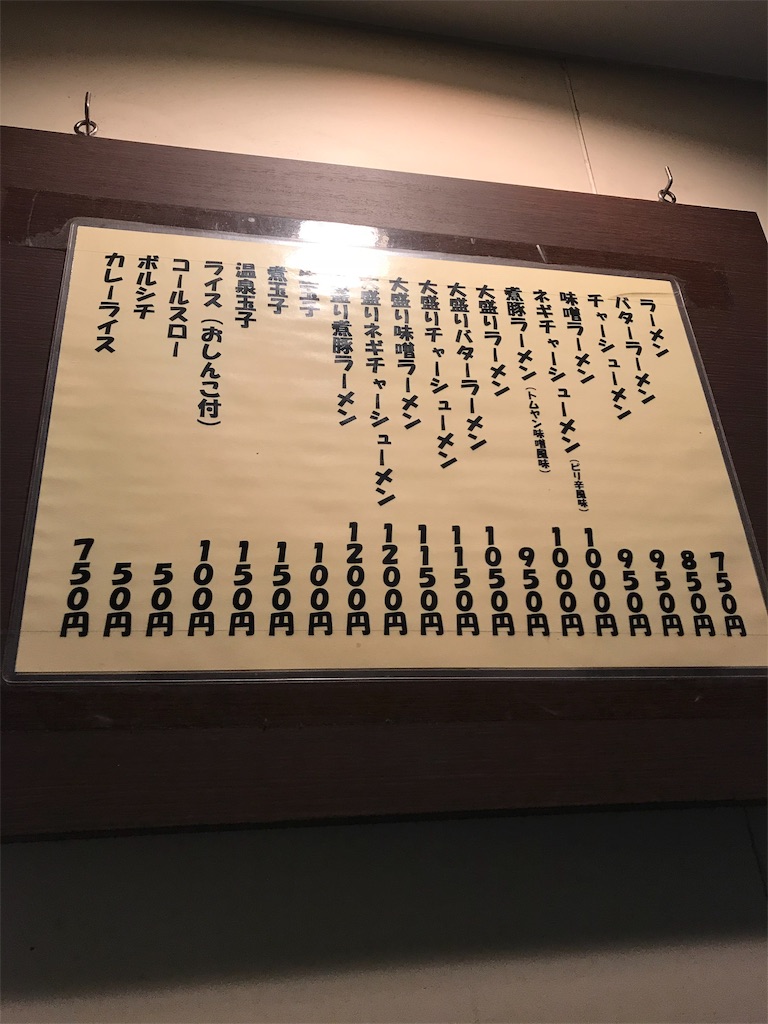 ラーメン 750円
バターラーメン 850円
チャーシューメン 950円
味噌ラーメン 950円
ネギチャーシューメン(ピリ辛風味) 1000円
煮豚ラーメン(トムヤン味噌風味) 1000円
大盛りラーメン 950円
大盛りバターラーメン 1050円
大盛りチャーシューメン 1150円
大盛り味噌ラーメン 1150円
大盛りネギチャーシューメン 1200円
大盛り煮豚ラーメン 1200円
玉子 100円
煮玉子 150円
温泉玉子 150円
ライス(おしんこ付) 100円
コールスロー 50円
ボルシチ 50円
カレーライス 750円